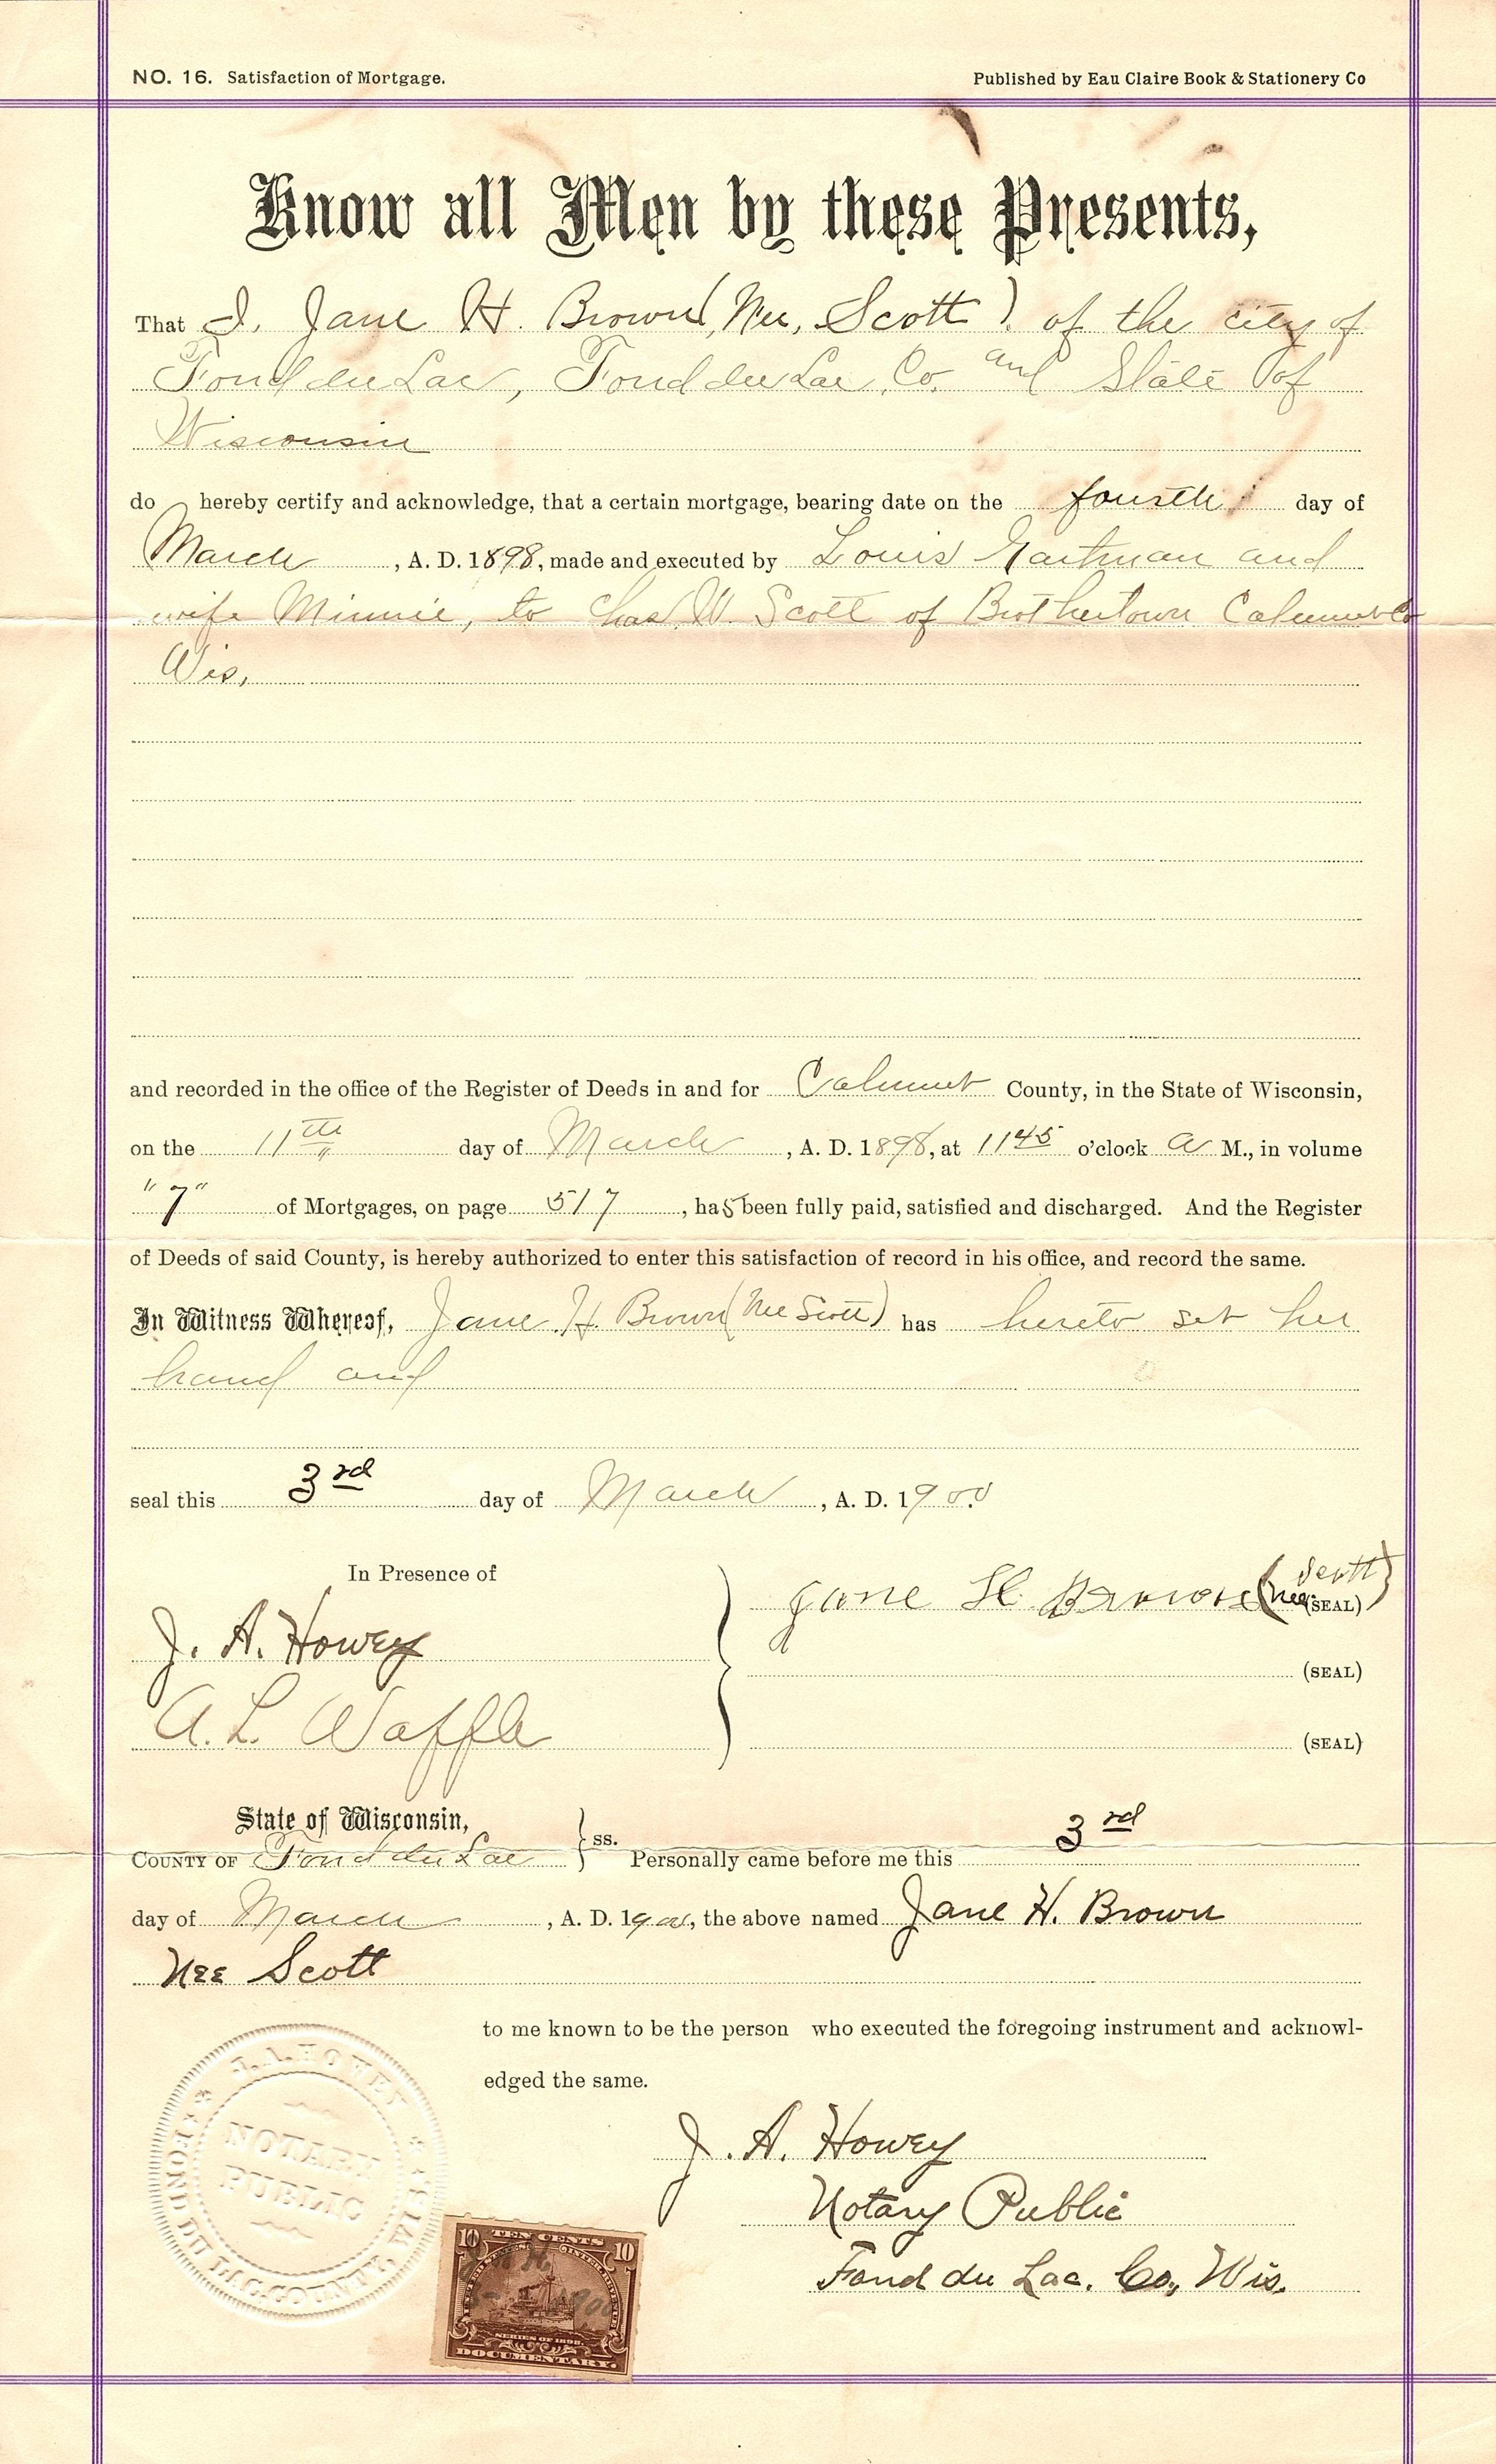 NO. 16. Satisfaction of Mortgage. Published by Eau Claire Book & Stationery Co
Know all Men by these Presents,
That I, Jane H. Brown (Nee, Scott) of the city of
Fond du Lac, Fond du Lac, Co. and State of
Wisconsin
do hereby certify and acknowledge, that a certain mortgage, bearing date on the fourth day of
March, A. D. 1898, made and executed by Louis Hartman and
wife Minnie, to Chas W. Scott of Brothertown Calumet Co
Wis,
and recorded in the office of the Register of Deeds in and for Calumet County, in the State of Wisconsin,
on the 11th day of March, A. D. 1898, at 11 45 o'clock A M., in volume
"7" of Mortgages, on page 517, has been fully paid, satisfied and discharged. And the Register
of Deeds of said County, is hereby authorized to enter this satisfaction of record in his office, and record the same.
In Witness Whereof, Jane H. Brown (Nee Scott) has hereto set her
hand and
seal this 3rd day of March, A. D. 1900
In Presence of
Jane H. Brown (nee Scott) (SEAL)
J. A. Howey
(SEAL)
A. L. Waffle
(SEAL)
State of Wisconsin,
COUNTY OF Fond du Lac } ss. Personally came before me this 3rd
day of March, A. D. 1900, the above named Jane H. Brown
Nee Scott
to me known to be the person who executed the foregoing instrument and acknowl-
edged the same.
J. A. HOWEY
NOTARY
PUBLIC
FOND DU LAC COUNTY, WIS.
J. A. Howey
Notary Public
Fond du Lac. Co., Wis.
10 TEN CENTS 10
J A H
1900
SERIES OF 1898.
DOCUMENTARY